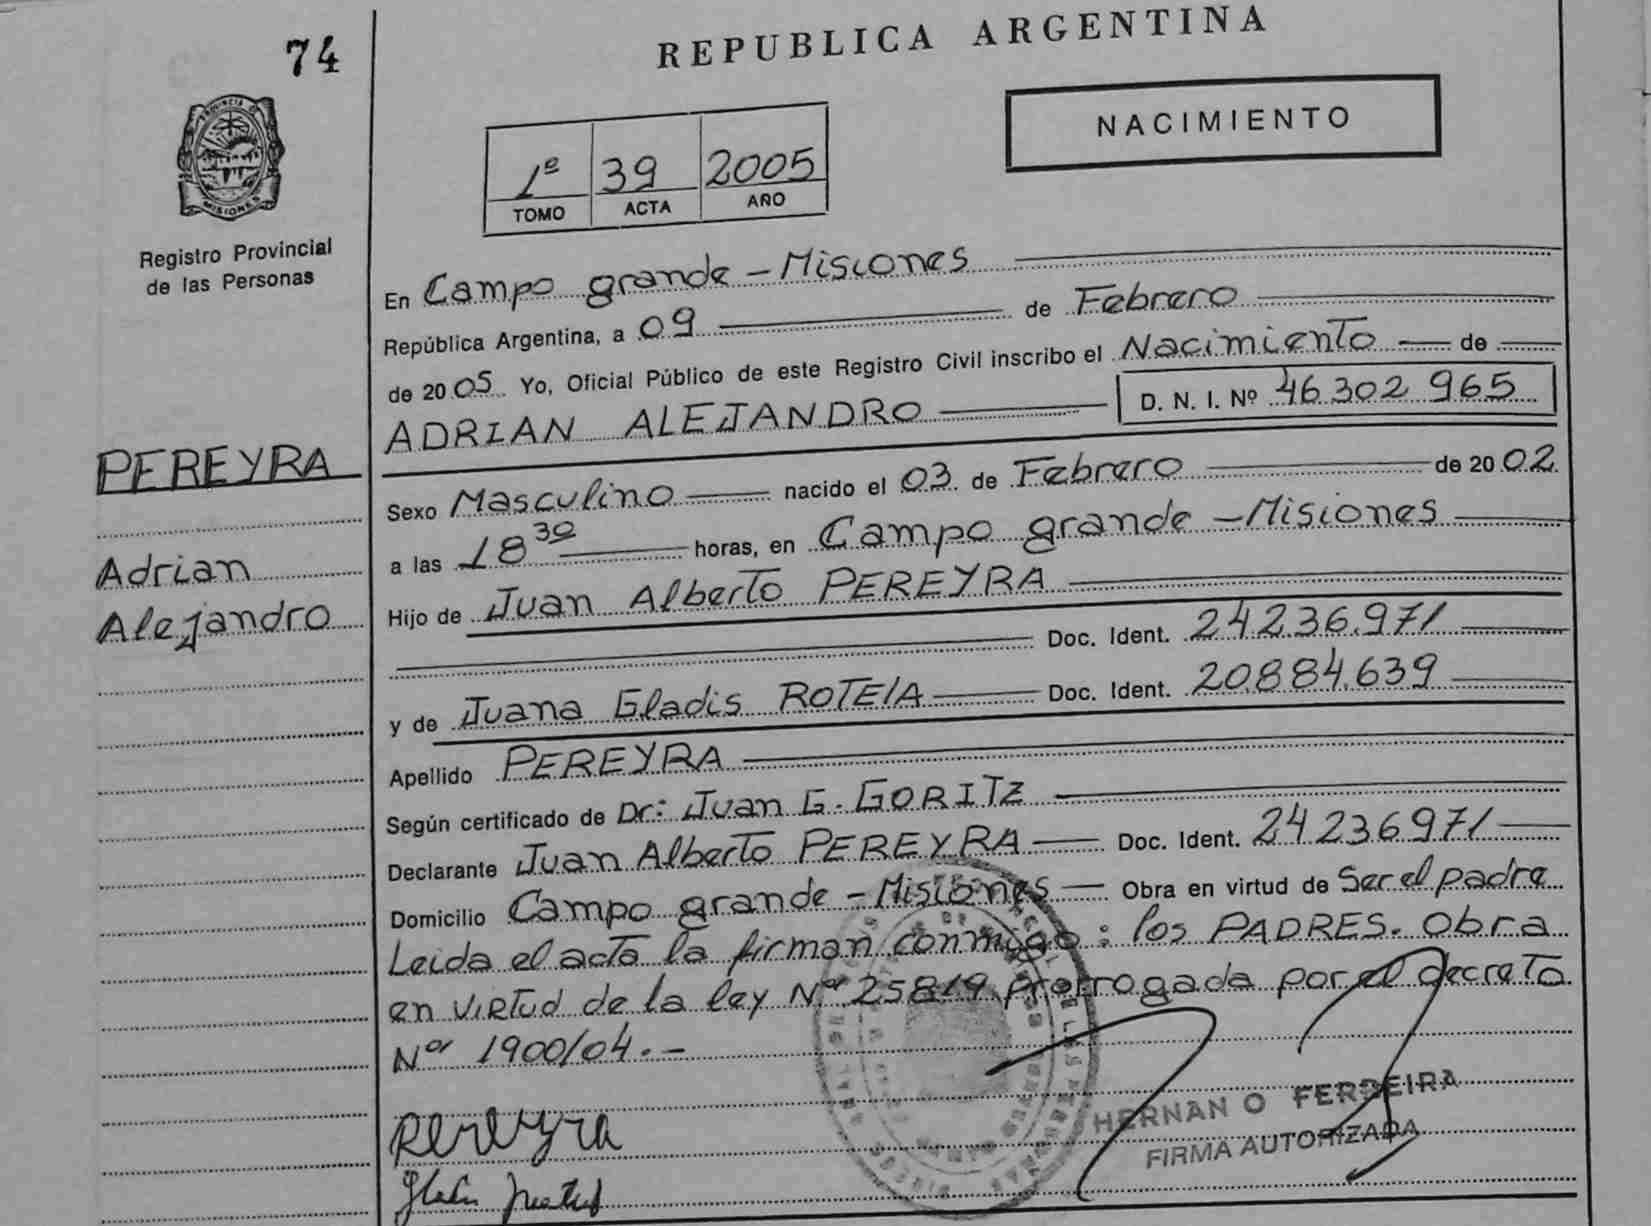 74
REPUBLICA ARGENTINA
NACIMIENTO
1º 39 2005
TOMO ACTA AÑO
PROVINCIA DE
MISIONES
Registro Provincial
de las Personas
En Campo grande - Misiones
República Argentina, a 09 de Febrero
de 2005 Yo, Oficial Público de este Registro Civil inscribo el Nacimiento de
ADRIAN ALEJANDRO D. N. I. Nº 46.302.965
PEREYRA
Adrian
Alejandro
Sexo Masculino nacido el 03 de Febrero de 2002
a las 18 30 horas, en Campo grande - Misiones
Hijo de Juan Alberto PEREYRA
Doc. Ident. 24.236.971
y de Juana Gladis ROTELA Doc. Ident. 20.884.639
Apellido PEREYRA
Según certificado de Dr: Juan G. GORITZ
Declarante Juan Alberto PEREYRA Doc. Ident. 24.236.971
Domicilio Campo grande - Misiones Obra en virtud de Ser el padre
Leida el acta la firman conmigo: los PADRES. Obra
en virtud de la ley Nº 25819 prorrogada por el decreto
Nº 1900/04.-
HERNAN O FERREIRA
FIRMA AUTORIZADA
Pereyra